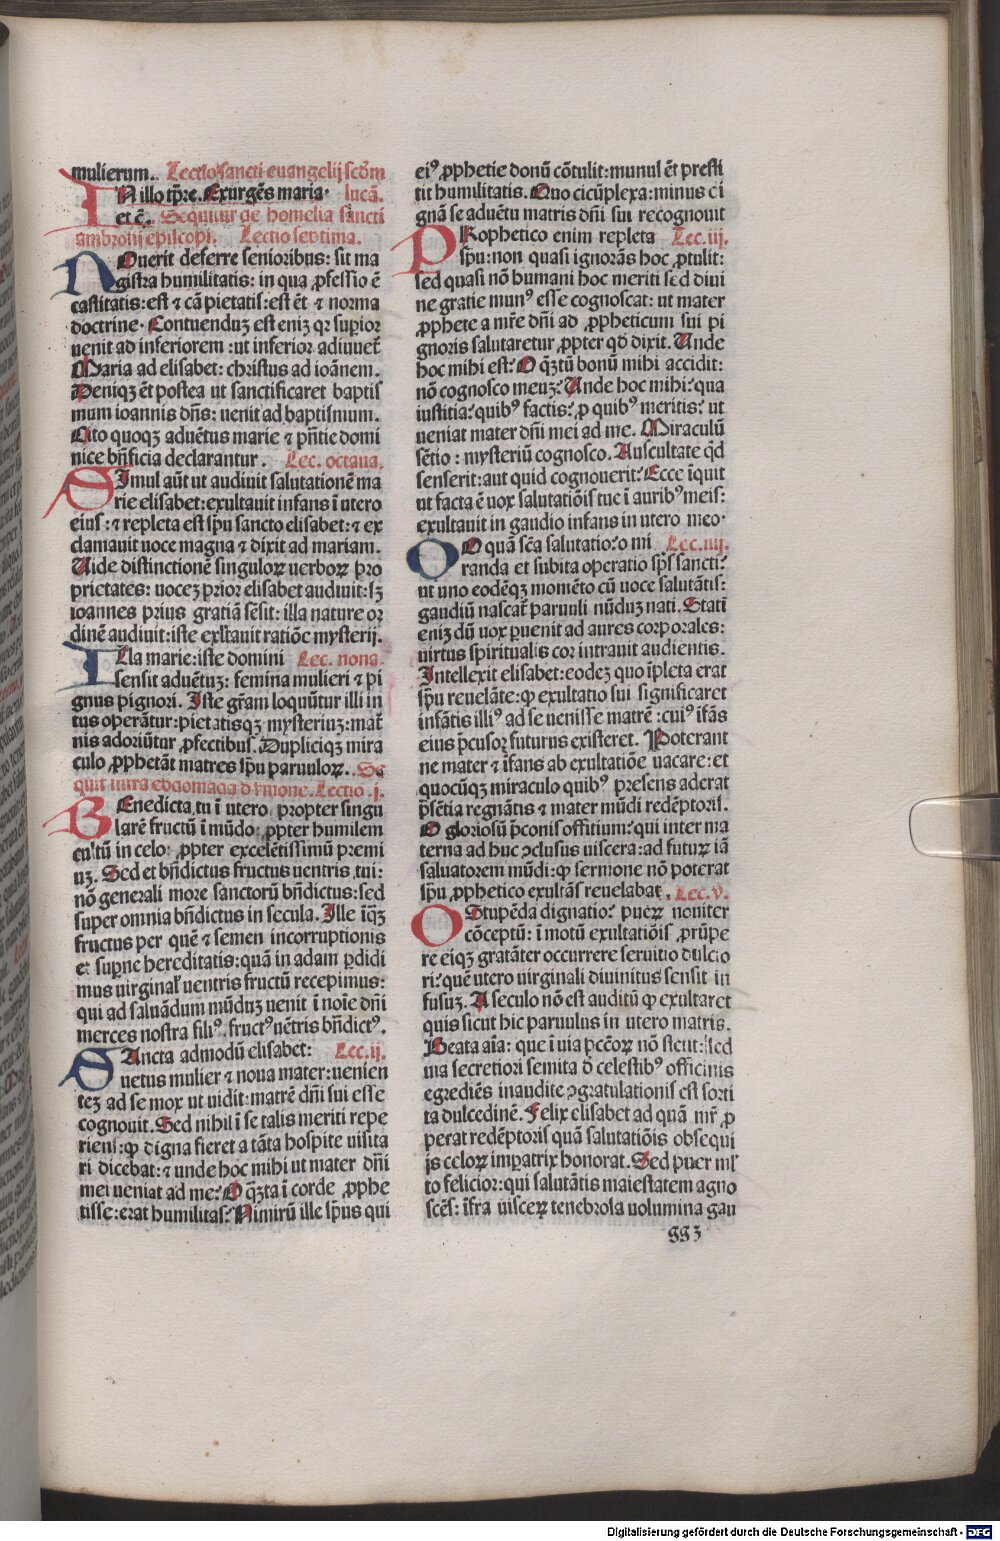 mulierum. Lectio sancti euangelij scḋm
IN illo tp̄re. Exurgēs maria. lucā.
et c̄. Sequitur de homelia sancti
ambrosij episcopi. Lectio septima.
NOuerit deferre senioribus: sit ma
gistra humilitatis: in qua ꝓfessio ē
castitatis: est ⁊ cā pietatis: est ēt ⁊ norma
doctrine. Contuenduꝫ est eniꝫ qꝛ supior
uenit ad inferiorem: ut inferior adiuuet̄
Maria ad elisabet: christus ad ioānem.
Deniqꝫ ēt postea ut sanctificaret baptis
mum ioannis dn̄s: uenit ad baptismum.
Cito quoqꝫ aduētus marie ⁊ pn̄tie domi
nice bn̄ficia declarantur. Lec. octaua.
SImul aūt ut audiuit salutationē ma
rie elisabet: exultauit infans ī utero
eius: ⁊ repleta est sp̄u sancto elisabet: ⁊ ex
clamauit uoce magna ⁊ dixit ad mariam.
Uide distinctionē singuloꝝ uerboꝝ pro
prietates: uoceꝫ prior elisabet audiuit: sꝫ
ioannes prius gratiā sēsit: illa nature or
dinē audiuit: iste exul̄tauit ratiōe mysterij.
ILla marie: iste domini Lec. nona.
sensit aduētuꝫ: femina mulieri ⁊ pi
gnus pignori. Iste gr̄am loquūtur illi in
tus operātur: pietatisqꝫ mysteriuꝫ: mat̄
nis adoriūtur ꝓfectibus. Dupliciqꝫ mira
culo ꝓphetāt matres sp̄u paruuloꝝ. Se
quit̄ infra ebdomada d unione. Lectio .j.
BEnedicta tu ī utero propter singu
larē fructū ī mūdo: ꝓpter humilem
cultū in celo: ꝓpter excelētissimū premi
uꝫ. Sed et bn̄dictus fructus uentris tui:
nō generali more sanctorū bn̄dictus: sed
super omnia bn̄dictus in secula. Ille īqꝫ
fructus per quē ⁊ semen incorruptionis
et supne hereditatis: quā in adam pdidi
mus uirginal̄ uentris fructū recepimus:
qui ad saluādum mūduꝫ uenit ī noīe dn̄i
merces nostra filiꝰ. fructꝰ uētris bn̄dictꝰ.
SAncta admodū elisabet: Lec. ij.
uetus mulier ⁊ noua mater: uenien
teꝫ ad se mox ut uidit: matrē dn̄i sui esse
cognouit. Sed nihil ī se talis meriti repe
riens: ꝙ digna fieret a tāta hospite uisita
ri dicebat: ⁊ unde hoc mihi ut mater dn̄i
mei ueniat ad me? O qꝫta ī corde ꝓphe
tisse: erat humilitas? Nimirū ille sp̄us qui
eiꝰ ꝓphetie donū cōtulit: munus ēt presti
tit humilitatis. Quo cicūplexa: minus ci
gnā se aduētu matris dn̄i sui recognouit
PRophetico enim repleta Lec. iij.
sp̄u: non quasi ignorās hoc ꝓtulit:
sed quasi nō humani hoc meriti sed diui
ne gratie munꝰ esse cognoscat: ut mater
ꝓphete a mr̄e dn̄i ad ꝓpheticum sui pi
gnoris salutaretur ꝓpter qd̄ dixit. Unde
hoc mihi est? O qꝫtū bonū mihi accidit:
nō cognosco meuꝫ? Unde hoc mihi? qua
iustitia? quibꝰ factis? ꝓ quibꝰ meritis? ut
ueniat mater dn̄i mei ad me. Miraculū
sētio: mysteriū cognosco. Auscultate qd̄
senserit: aut quid cognouerit? Ecce īquit
ut facta ē uox salutatiōis tue ī auribꝰ meis:
exultauit in gaudio infans in utero meo.
OO quā sc̄a salutatio? o mi Lec. iiij.
randa et subita operatio sp̄s sancti?
ut uno eodēqꝫ momēto cū uoce salutātis:
gaudiū nascat̄ paruuli nūduꝫ nati. Stati
eniꝫ dū uox puenit ad aures corporales:
uirtus spiritualis cor intrauit audientis.
Intellexit elisabet: eodeꝫ quo īpleta erat
sp̄u reuelāte: ꝙ exultatio sui significaret
infātis illiꝰ ad se uenisse matrē: cuiꝰ ifās
eius p̄cusor futurus existeret. Poterant
ne mater ⁊ īfans ab exultatiōe uacare: et
quocūqꝫ miraculo quibꝰ presens aderat
p̄sētia regnātis ⁊ mater mūdi redēptoris.
O gloriosū p̄conis offitium? qui inter ma
terna ad huc ꝯclusus uiscera: ad futuꝝ iā
saluatorem mūdi: ꝙ sermone nō poterat
sp̄u ꝓphetico exultās reuelabat. Lec. v.
OStupēda dignatio? pueꝝ nouiter
cōceptū: ī motū exultatiōis ꝓrūpe
re eiqꝫ gratāter occurrere seruitio dulcio
ri? quē utero uirginali diuinitus sensit in
fusuꝫ. A seculo nō est auditū ꝙ exultaret
quis sicut hic paruulus in utero matris.
Beata aīa: que ī uia p̄cēoꝝ nō stetit: sed
uia secretiori semita d celestibꝰ officinis
egrediēs inaudite ꝯgratulationis est sorti
ta dulcedinē. Felix elisabet ad quā mr̄ ꝓ
perat redēptoris quā salutatiōis obsequi
js celoꝝ imperatrix honorat. Sed puer ml̄
to felicior: qui salutātis maiestatem agno
scēs: īfra uisceꝝ tenebrosa uolumina gau
gg 3
Digitalisierung gefördert durch die Deutsche Forschungsgemeinschaft - DFG